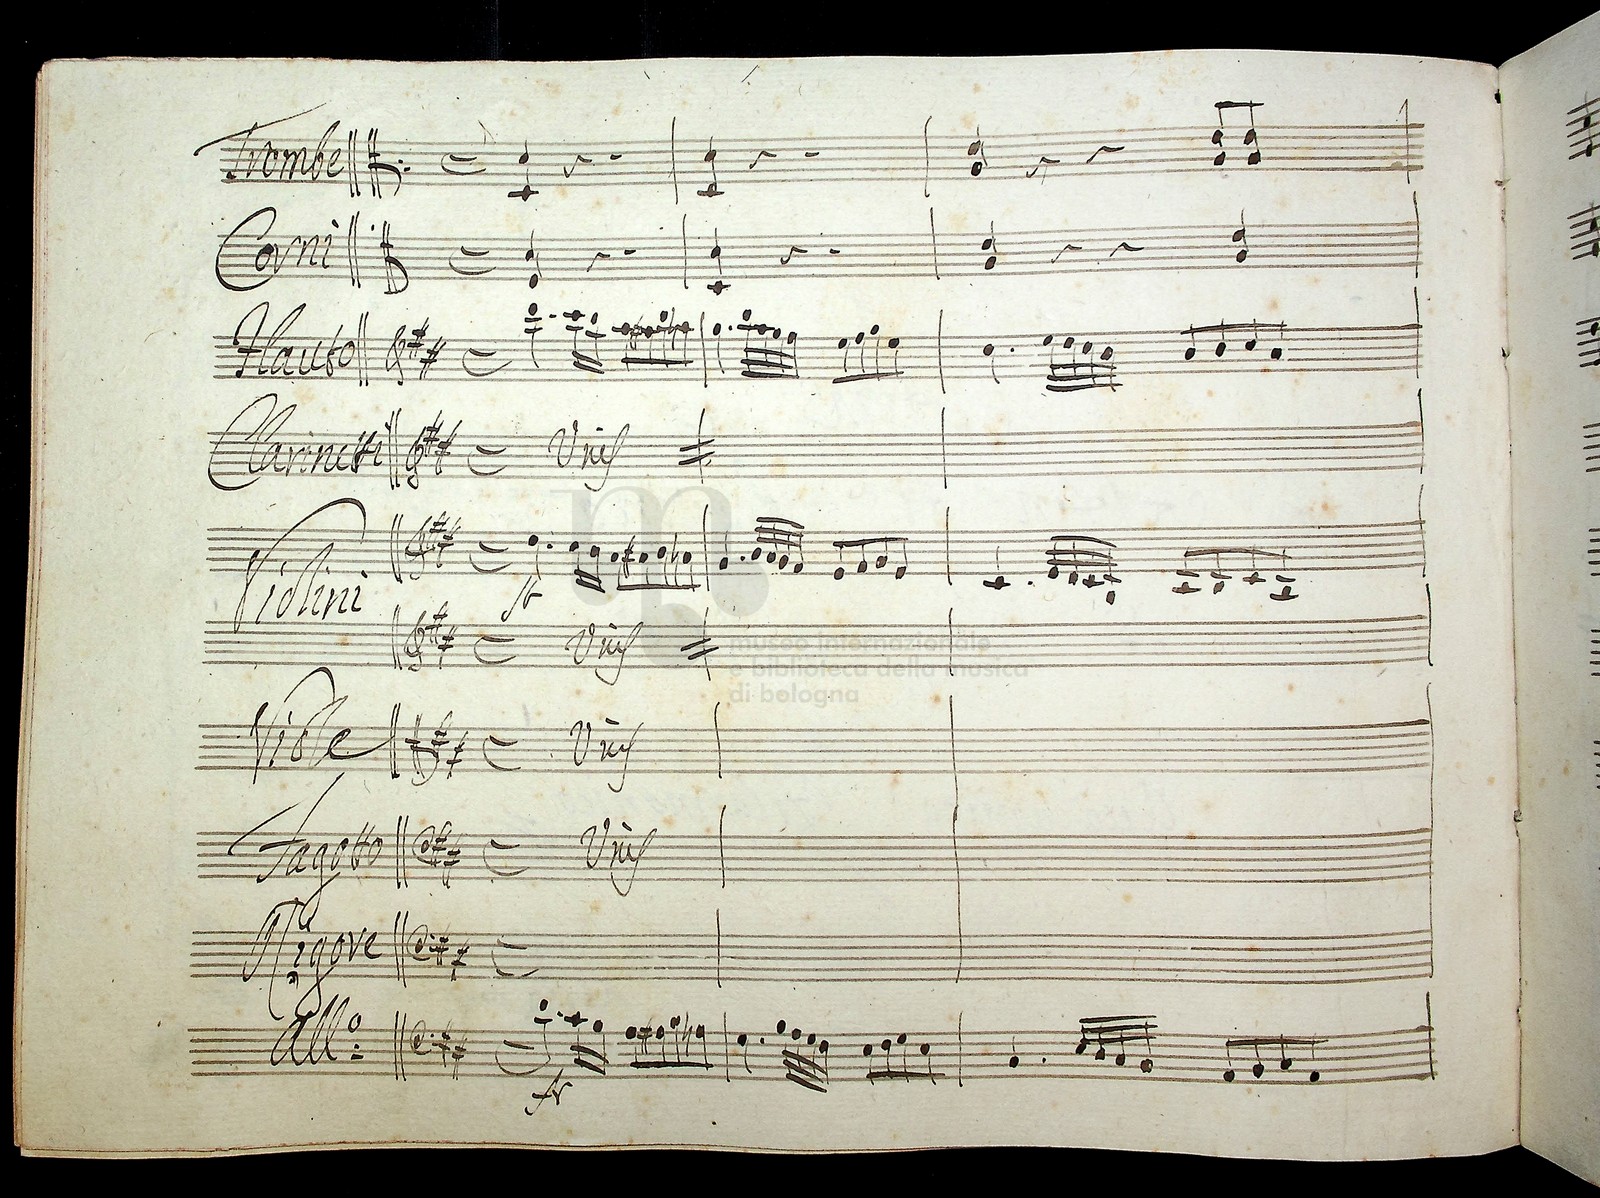 Trombe
Corni
Flauto
Clarinetti Unis
Violini
Unis
Viole Unis
Fagotto Unis
All:o
museo internazionale
e biblioteca della musica
di bologna